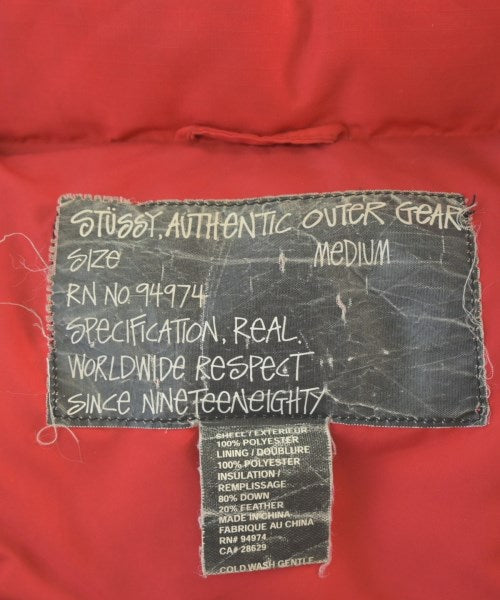 STÜSSY, AUTHENTIC OUTER GEAR
SIZE MEDIUM
RN NO. 94974
SPECIFICATION, REAL.
WORLDWIDE RESPECT
SINCE NINETEENEIGHTY
SHELL / EXTERIEUR
100% POLYESTER
LINING / DOUBLURE
100% POLYESTER
INSULATION /
REMPLISSAGE
80% DOWN
20% FEATHER
MADE IN CHINA
FABRIQUE AU CHINA
RN# 94974
CA# 28629
COLD WASH GENTLE